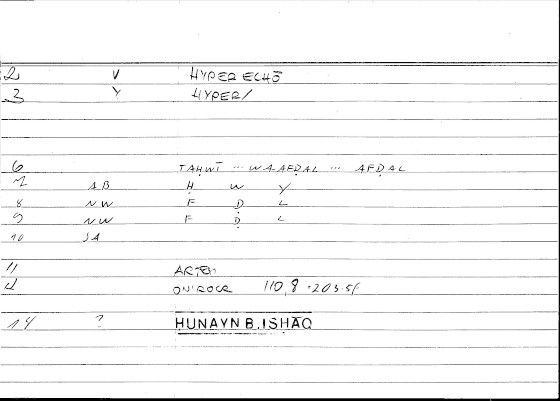 2 V HYPER ECHŌ
3 Y HYPER/
6 TAḤWĪ ... WA-AFḌAL ... AFḌAL
7 AB Ḥ W Y
8 NW F Ḍ L
9 NW F Ḍ L
10 SA
11 ARTEM
ONIROCR 110,8 - 203.5f
14 ? HUNAYN B. ISHĀQ